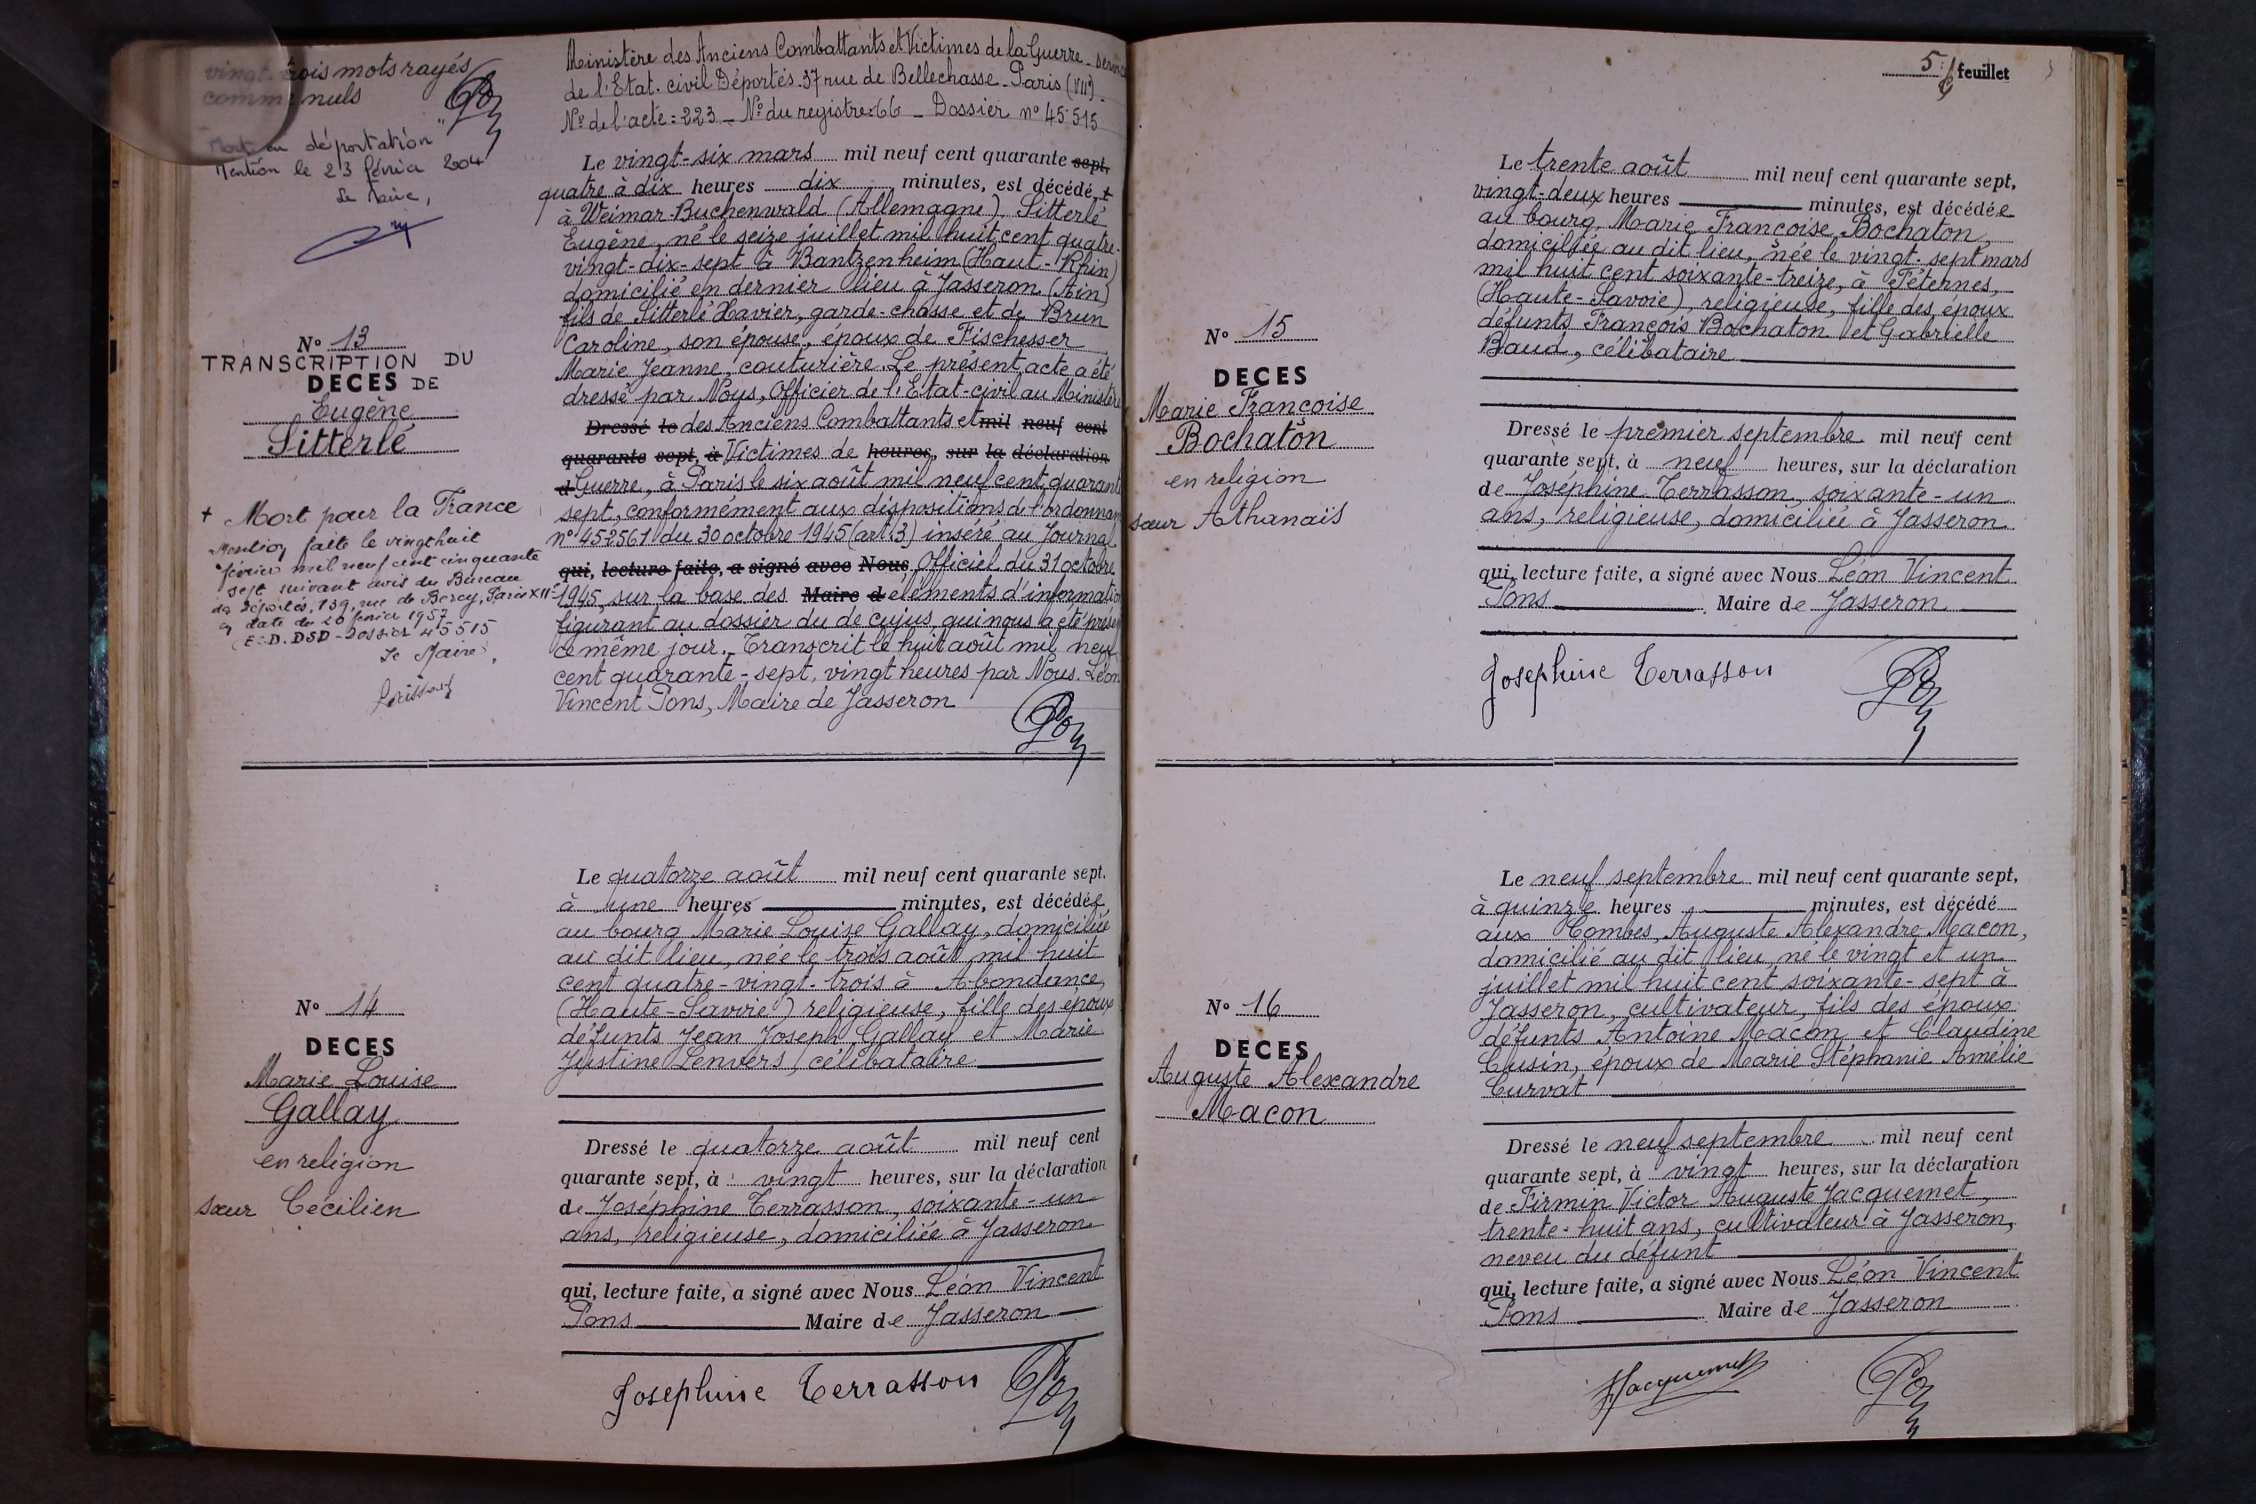 vingt-trois mots rayés
comme nuls
"Mort en déportation"
Mention le 23 février 2004
Le Maire,
Nº 13
TRANSCRIPTION DU
DECES DE
Eugène
Sitterlé
+ Mort pour la France
Mention faite le vingt huit
février mil neuf cent cinquante
sept suivant avis du Bureau
des Déportés, 139, rue de Bercy, Paris XIIe
en date du 20 février 1957
(E.C.D. DSD - Dossier 45515
Le Maire,
Ministère des Anciens Combattants et Victimes de la Guerre - service
de l'Etat-civil Déportés - 37 rue de Bellechasse - Paris (VIIe) -
Nº de l'acte = 223 - Nº du registre = 66 - Dossier nº 45-515
Le vingt-six mars mil neuf cent quarante sept,
quatre à dix heures dix minutes, est décédé, +
à Weimar-Buchenwald (Allemagne), Sitterlé
Eugène, né le seize juillet mil huit cent quatre-
vingt-dix-sept à Bantzenheim (Haut-Rhin)
domicilié en dernier lieu à Jasseron (Ain)
fils de Sitterlé Xavier, garde-chasse et de Brun
Caroline, son épouse, époux de Fischesser
Marie Jeanne, couturière. Le présent acte a été
dressé par Nous, Officier de l'Etat-civil au Ministère
Dressé le des Anciens Combattants et mil neuf cent
quarante sept, à Victimes de heures, sur la déclaration
d Guerre, à Paris le six août mil neuf cent quarante
sept, conformément aux dispositions de l'ordonnan
nº 45-2561 du 30 octobre 1945 (art. 3) inséré au Journal
qui, lecture faite, a signé avec Nous Officiel du 31 octobre
1945, sur la base des Maire d éléments d'information
figurant au dossier du de cujus, qui nous a été présen
ce même jour. Transcrit le huit août mil neuf
cent quarante-sept, vingt heures par Nous. Léon
Vincent Pons, Maire de Jasseron
Pons
Nº 14
DECES
Marie Louise
Gallay
en religion
sœur Cécilien
Le quatorze août mil neuf cent quarante sept.
à une heures minutes, est décédée
au bourg Marie Louise Gallay, domiciliée
au dit lieu, née le trois août mil huit
cent quatre-vingt-trois à Abondance,
(Haute-Savoie) religieuse, fille des époux
défunts Jean Joseph Gallay et Marie
Justine Lenvers, célibataire
Dressé le quatorze août mil neuf cent
quarante sept, à vingt heures, sur la déclaration
de Joséphine Terrasson, soixante-un
ans, religieuse, domiciliée à Jasseron
qui, lecture faite, a signé avec Nous Léon Vincent
Pons Maire de Jasseron
Josephine Terrasson Pons
5e feuillet
Nº 15
DECES
Marie Françoise
Bochaton
en religion
sœur Athanaïs
Le trente août mil neuf cent quarante sept,
vingt-deux heures minutes, est décédée
au bourg, Marie Françoise Bochaton,
domiciliée au dit lieu, née le vingt-sept mars
mil huit cent soixante-treize, à Féternes,
(Haute-Savoie), religieuse, fille des époux
défunts François Bochaton et Gabrielle
Baud, célibataire
Dressé le premier septembre mil neuf cent
quarante sept, à neuf heures, sur la déclaration
de Joséphine Terrasson, soixante-un
ans, religieuse, domiciliée à Jasseron
qui, lecture faite, a signé avec Nous Léon Vincent
Pons Maire de Jasseron
Josephine Terrasson Pons
Nº 16
DECES
Auguste Alexandre
Macon
Le neuf septembre mil neuf cent quarante sept,
à quinze heures minutes, est décédé
aux Combes, Auguste Alexandre Macon,
domicilié au dit lieu, né le vingt et un
juillet mil huit cent soixante-sept à
Jasseron, cultivateur, fils des époux
défunts Antoine Macon et Claudine
Cusin, époux de Marie Stéphanie Amélie
Curvat
Dressé le neuf septembre mil neuf cent
quarante sept, à vingt heures, sur la déclaration
de Firmin Victor Auguste Jacquemet,
trente-huit ans, cultivateur à Jasseron,
neveu du défunt
qui, lecture faite, a signé avec Nous Léon Vincent
Pons Maire de Jasseron
Jacquemet Pons